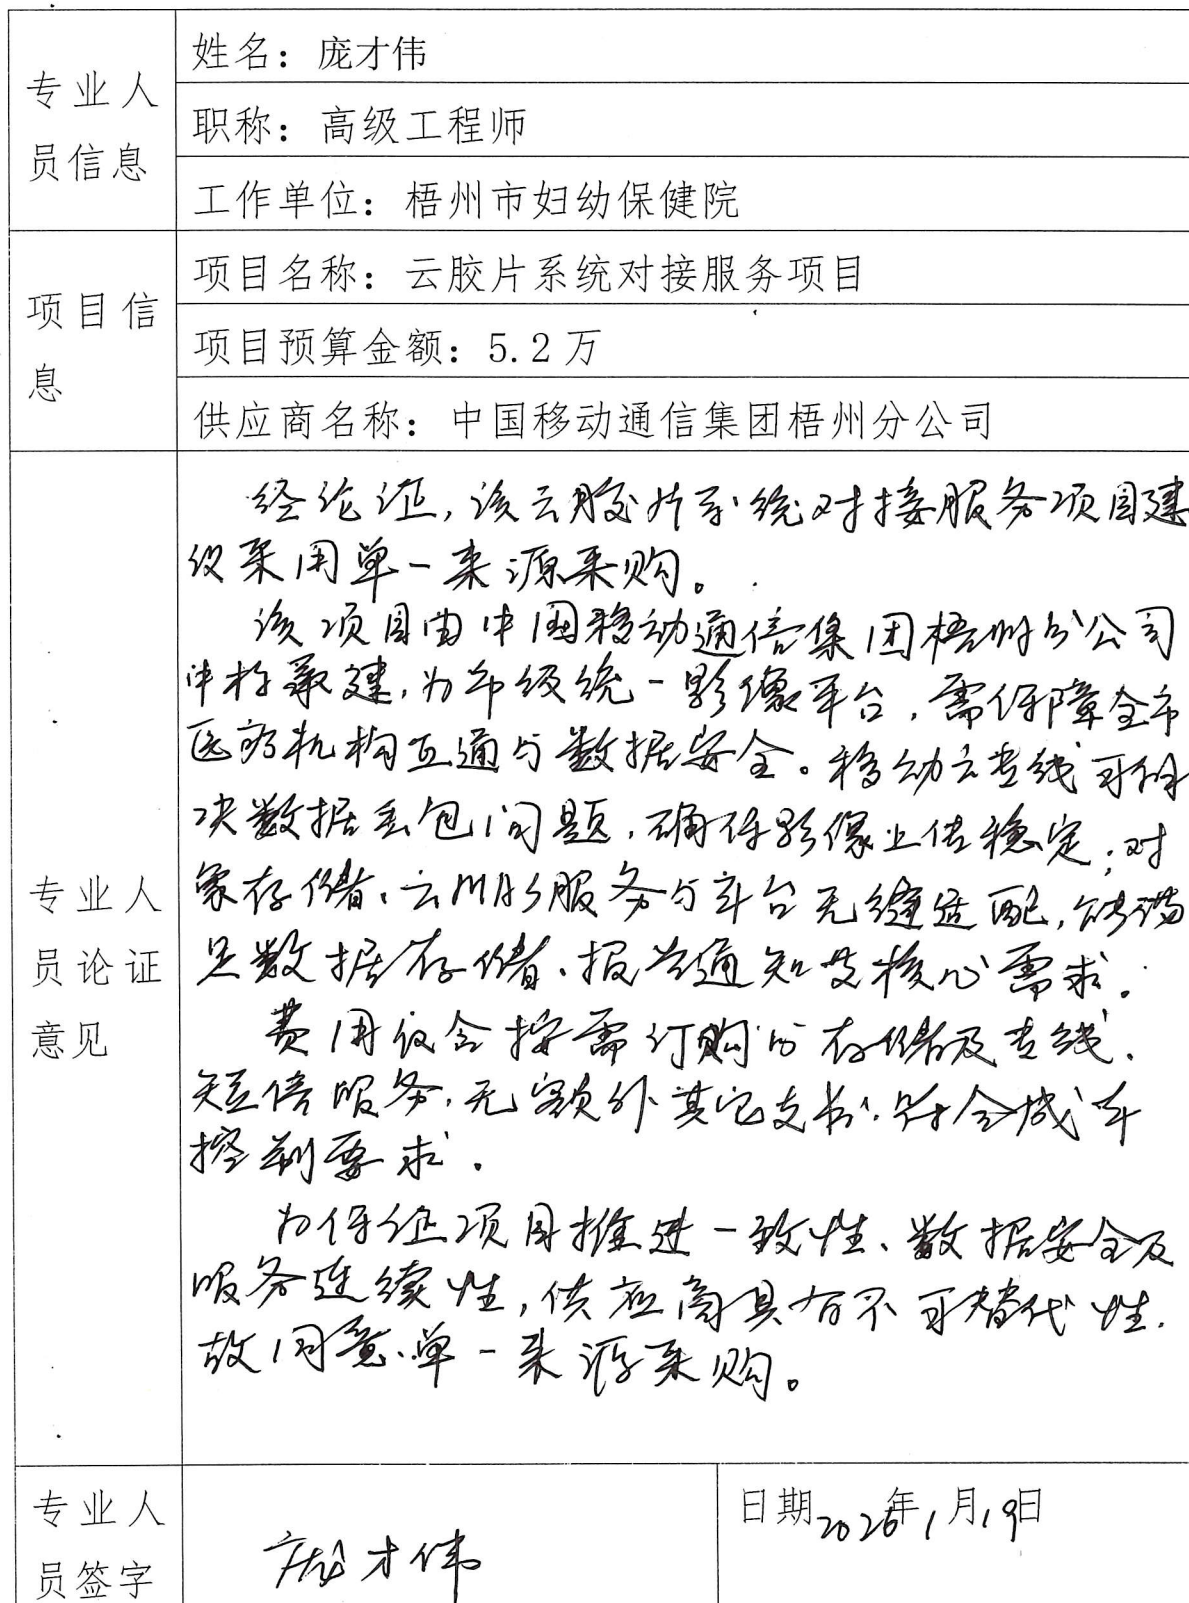 专业人员信息
姓名：庞才伟
职称：高级工程师
工作单位：梧州市妇幼保健院
项目信息
项目名称：云胶片系统对接服务项目
项目预算金额：5.2万
供应商名称：中国移动通信集团梧州分公司
专业人员论证意见
经论证，该云胶片系统对接服务项目建
议采用单一来源采购。
该项目由中国移动通信集团梧州分公司
中标承建，为市级统一影像平台，需保障全市
医疗机构互通与数据安全。移动云专线可解
决数据丢包问题，确保影像上传稳定；对
象存储、云MAS服务与平台无缝适配，能满
足数据存储、报告通知等核心需求。
费用仅含按需订购的存储及专线、
短信服务，无额外其它支出，符合成本
控制要求。
为保证项目推进一致性、数据安全及
服务连续性，供应商具有不可替代性，
故同意单一来源采购。
专业人员签字
庞才伟
日期2026年1月19日